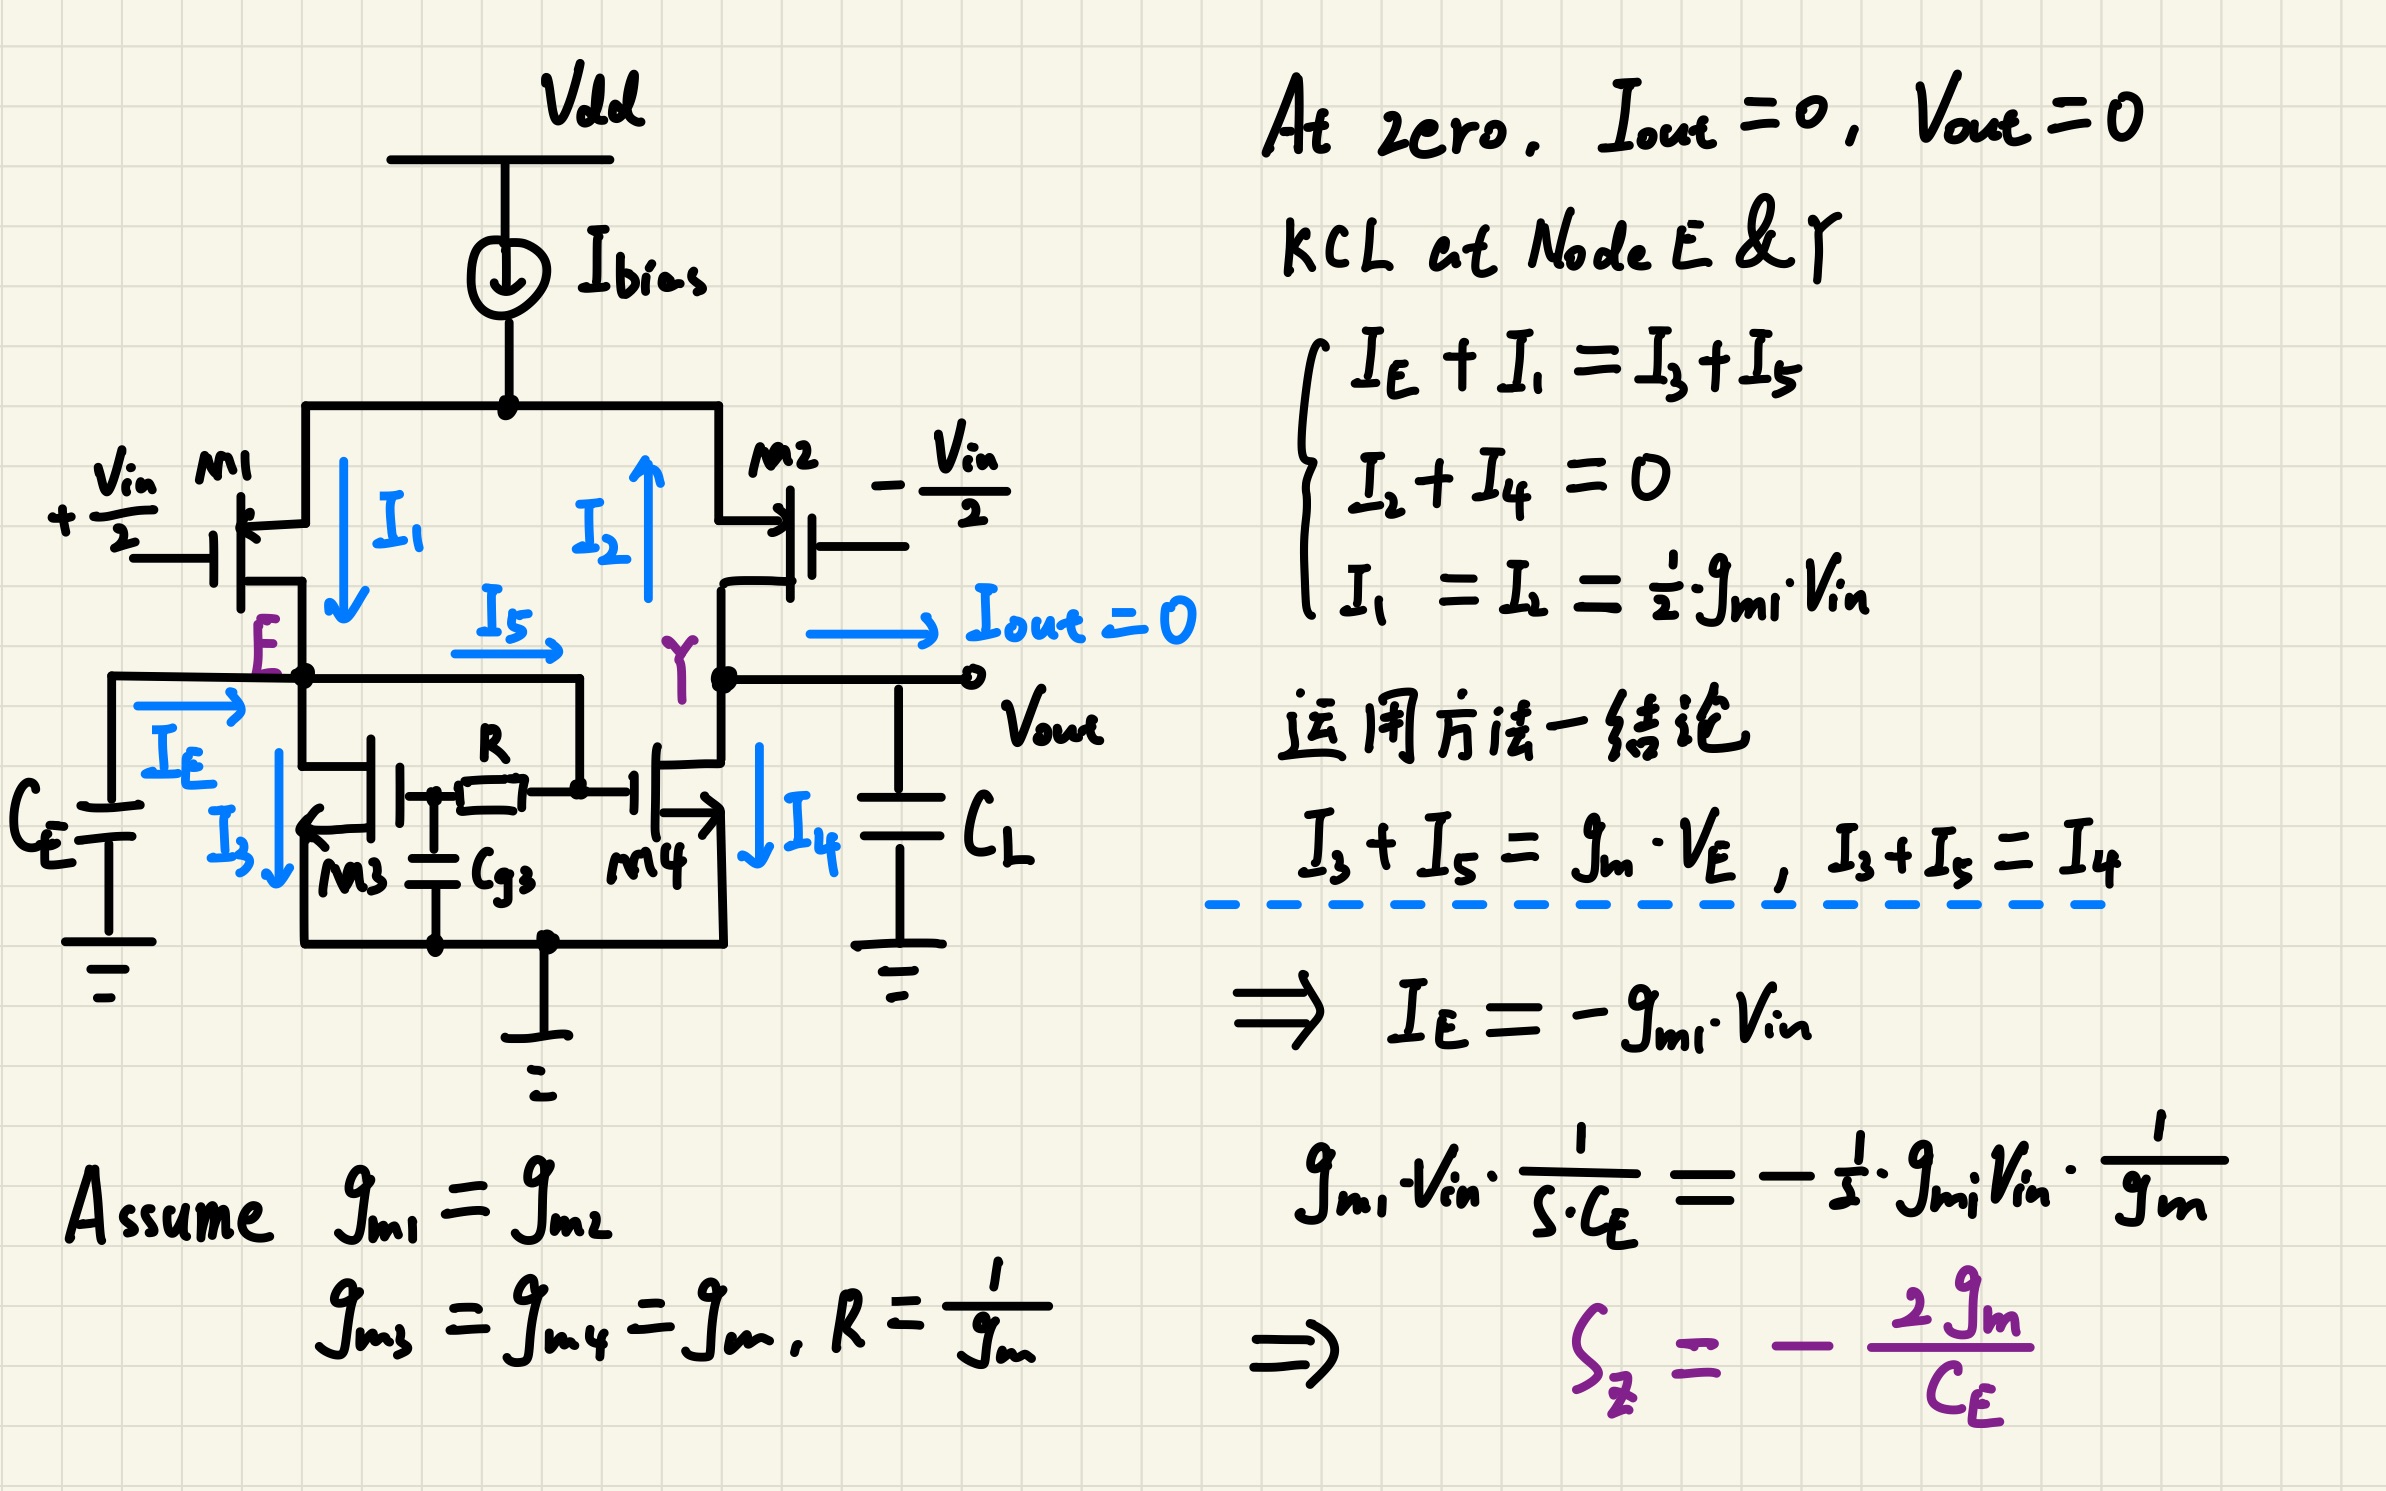 Vdd
Ibias
+ Vin/2
M1
I1
I2
M2
- Vin/2
E
I5
Y
Iout = 0
Vout
IE
CE
I3
M3
R
Cg3
M4
I4
CL
Assume gm1 = gm2
gm3 = gm4 = gm, R = 1/gm
At zero, Iout = 0, Vout = 0
KCL at Node E & Y
IE + I1 = I3 + I5
I2 + I4 = 0
I1 = I2 = 1/2 · gm1 · Vin
运用方法一结论
I3 + I5 = gm · VE , I3 + I5 = I4
⇒ IE = - gm1 · Vin
gm1 · Vin · 1/S·CE = - 1/2 · gm1 Vin · 1/gm
⇒ Sz = - 2gm/CE